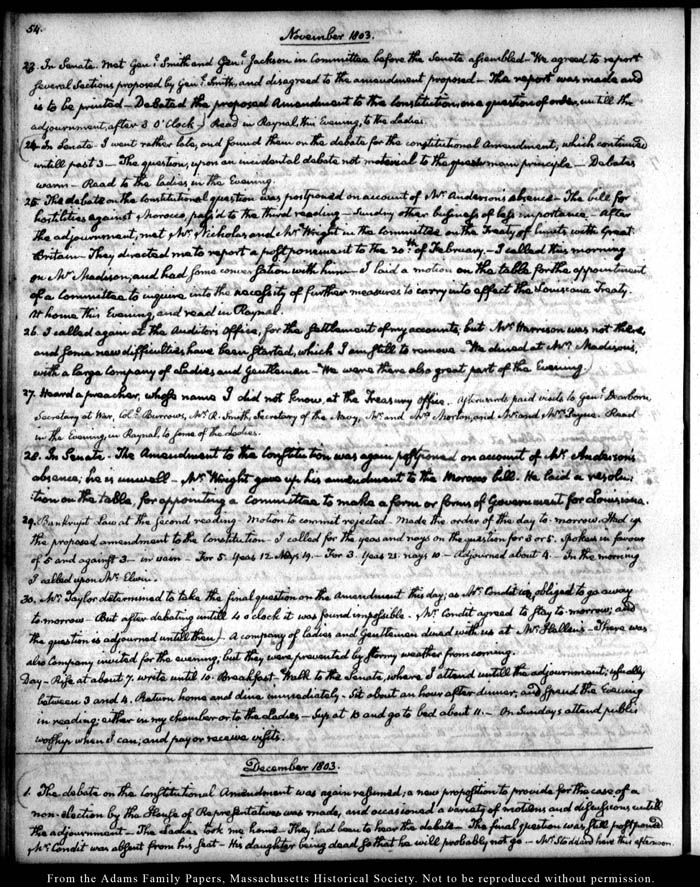 54.
November 1803.
23. In Senate. Met Genl. Smith and Genl. Jackson in Committee before the Senate assembled – We agreed to report
several Sections proposed by Genl. Smith, and disagreed to the amendment proposed – The report was made and
is to be printed – Debated the proposed Amendment to the Constitution, on a question of order, untill the
adjournment, after 3 O'Clock – Read in Raynal, this Evening, to the Ladies.
24. In Senate. I went rather late, and found them on the debate for the constitutional Amendment, which continued
untill past 3 – The question, upon an incidental debate not material to the main principle – Debates
warm – Read to the ladies in the Evening.
25. The debate on the Constitutional question was postponed on account of Mr. Anderson's absence – The bill for
hostilities against Morocco, pass'd to the third reading – Sundry other business of less importance. After
the adjournment, met Mr. Nicholas and Mr. Wright in the Committee on the Treaty of limits with Great
Britain – They directed me to report a postponement to the 20th. of February – I called this morning
on Mr. Madison, and had some conversation with him – I laid a motion on the table for the appointment
of a Committee to inquire into the necessity of further measures to carry into effect the Louisiana Treaty.
At home this Evening, and read in Raynal.
26. I called again at the Auditor's Office, for the settlement of my accounts, but Mr. Harrison was not there,
and some new difficulties have been started, which I am still to remove – We dined at Mr. Madison's,
with a large company of Ladies and Gentlemen – We were there also great part of the Evening.
27. Heard a preacher, whose name I did not know, at the Treasury Office. Afterwards paid visits to Genl. Dearborn,
Secretary at War, Coll. Burrows, Mr. R. Smith, Secretary of the Navy, Mr. and Mrs. Morton, and Mr. and Mrs. Payne. Read
in the Evening, in Raynal, to some of the Ladies.
28. In Senate. The Amendment to the Constitution was again postponed on account of Mr. Anderson's
absence; he is unwell – Mr. Wright gave up his amendment to the Morocco bill. He laid a resolu-
tion on the table, for appointing a Committee to make a form or forms of Government for Louisiana.
29. Bankrupt Law at the second reading – Motion to commit rejected – Made the order of the day to-morrow. Had up
the proposed amendment to the Constitution – I called for the yeas and nays on the question for 3 or 5. Spoke in favour
of 5 and against 3 – in vain – For 5. Yeas 12 Nays 19. – For 3. Yeas 21. nays 10 – Adjourned about 4. – In the morning
I called upon Mr.
30. Mr. Taylor determined to take the final question on the Amendment this day; as Mr. Condit is obliged to go away
to-morrow – But after debating until 4 o'clock it was found impossible. Mr. Condit agreed to stay to-morrow; and
the question is adjourned untill then – A company of ladies and Gentlemen dined with us at Mr. Hellen's – There was
also Company invited for the evening, but they were prevented by stormy weather from coming.
Day – Rise at about 7. write until 10. Breakfast – Walk to the Senate, where I attend untill the adjournment; usually
between 3 and 4. Return home and dine immediately. Sit about an hour after dinner, and spend the Evening
in reading; either in my chamber or to the Ladies – Sup at 10 and go to bed about 11. – On Sundays attend public
worship when I can; and pay or receive visits.
December 1803.
1. The debate on the Constitutional Amendment was again resumed; a new proposition to provide for the case of a
non-election by the House of Representatives was made, and occasioned a variety of motions and discussions untill
the adjournment – The Ladies took me home – They had been to hear the debate – The final question was still postponed
Mr. Condit was absent from his seat – His daughter being dead so that he will probably not go – Mr. Stoddard here this afternoon.
From the Adams Family Papers, Massachusetts Historical Society. Not to be reproduced without permission.